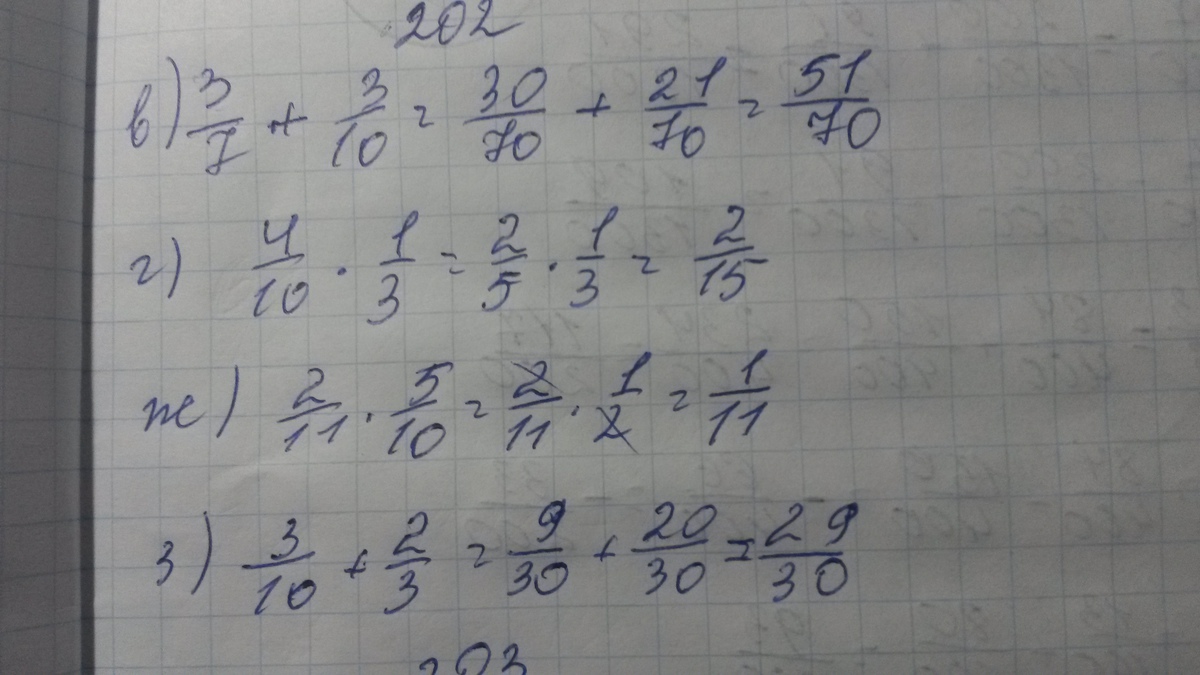 202
в) 3/7 + 3/10 = 30/70 + 21/70 = 51/70
г) 4/10 · 1/3 = 2/5 · 1/3 = 2/15
ж) 2/11 · 5/10 = 2/11 · 1/2 = 1/11
з) 3/10 + 2/3 = 9/30 + 20/30 = 29/30
203